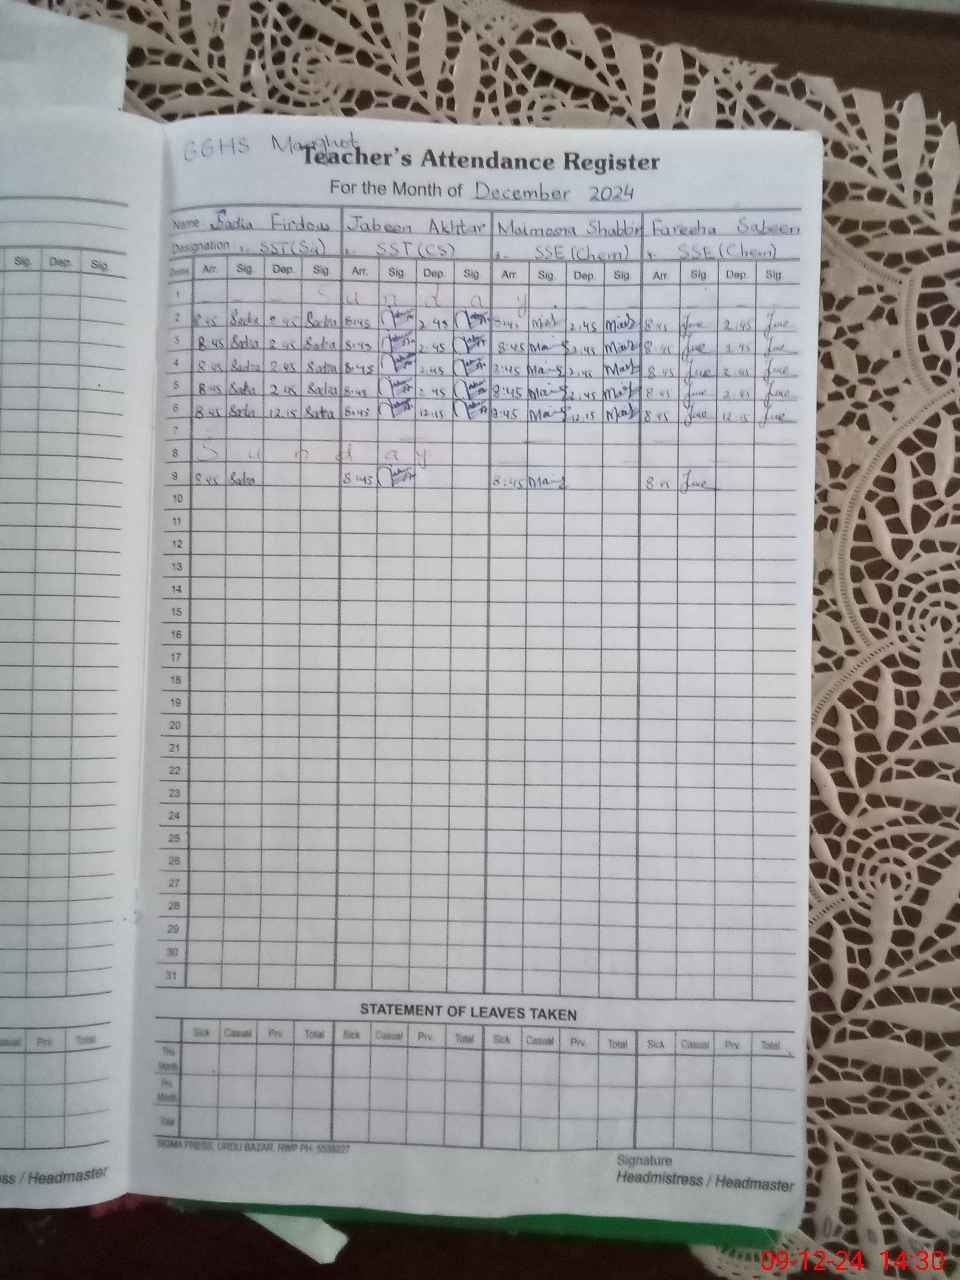 GGHS
Teacher's Attendance Register
For the Month of December 2024
Name Sadia Firdous Jabeen Akhtar Maimoona Shabbir Fareeha Sabeen
Designation SST(Sci) SST(CS) SSE(Chem) SSE(Chem)
Sig. Dep. Sig. Dates Arr. Sig. Dep. Sig. Arr. Sig. Dep. Sig Arr. Sig. Dep. Sig. Arr. Sig. Dep. Sig.
1 S u n d a y
2 8:45 Sadia 2:45 Sadia 8:45 2:45 2:45 8:45 2:45
3 8:45 Sadia 2:45 Sadia 8:45 2:45 8:45 2:45 8:45 2:45
4 8:45 Sadia 2:45 Sadia 8:45 2:45 8:45 2:45 8:45 2:45
5 8:45 Sadia 2:45 Sadia 8:45 2:45 8:45 2:45 8:45 2:45
6 8:45 Sadia 12:15 Sadia 8:45 12:15 8:45 12:15 8:45 12:15
7
8 S u n d a y
9 8:45 Sadia 8:45 8:45 8:45
10
11
12
13
14
15
16
17
18
19
20
21
22
23
24
25
26
27
28
29
30
31
STATEMENT OF LEAVES TAKEN
Casual Prv. Total Sick Casual Prv. Total Sick Casual Prv. Total Sick Casual Prv. Total Sick Casual Prv. Total
This Month
Prv. Month
Total
SIGMA PRESS, URDU BAZAR, RWP PH: 5539227
Signature
ss / Headmaster Headmistress / Headmaster
09-12-24 14:30